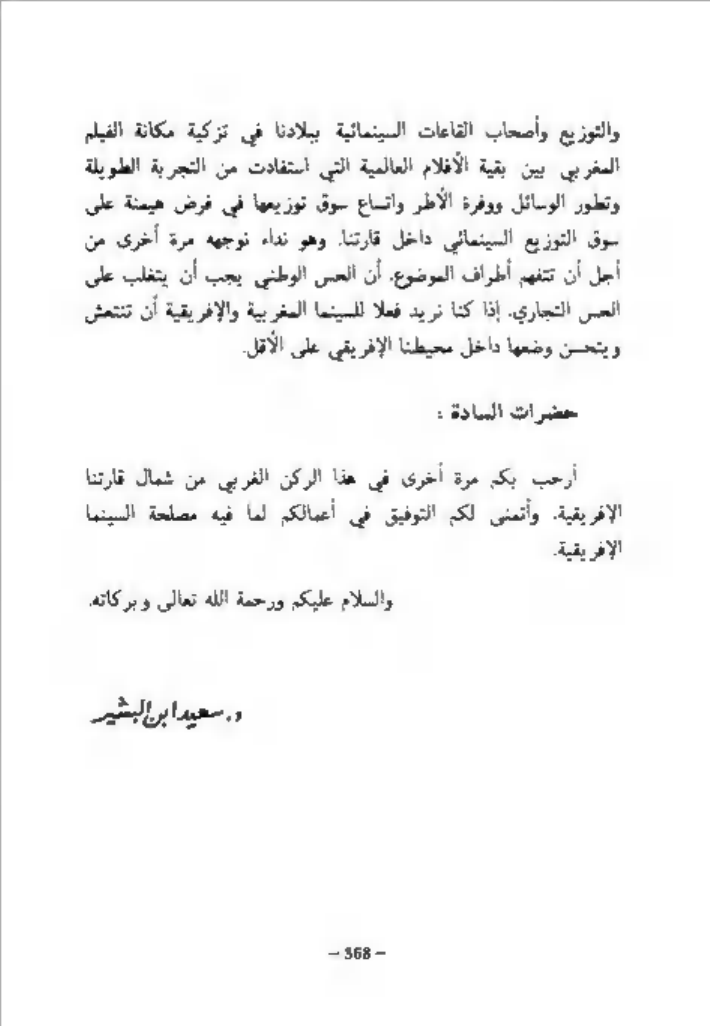 والتوزيع وأصحاب القاعات السينمائية ببلادنا في تزكية مكانة الفيلم
المغربي بين بقية الأفلام العالمية التي استفادت من التجربة الطويلة
وتطور الوسائل ووفرة الأطر واتساع سوق توزيعها في فرض هيمنة على
سوق التوزيع السينمائي داخل قارتنا. وهو نداء نوجهه مرة أخرى من
أجل أن تتفهم أطراف الموضوع. أن الحس الوطني يجب أن يتغلب على
الحس التجاري. إذا كنا نريد فعلا للسينما المغربية والإفريقية أن تنتعش
ويتحسن وضعها داخل محيطنا الإفريقي على الأقل.
حضرات السادة :
أرحب بكم مرة أخرى في هذا الركن الغربي من شمال قارتنا
الإفريقية. وأتمنى لكم التوفيق في أعمالكم لما فيه مصلحة السينما
الإفريقية.
والسلام عليكم ورحمة الله تعالى وبركاته.
د. سعيد ابن البشير
– 368 –